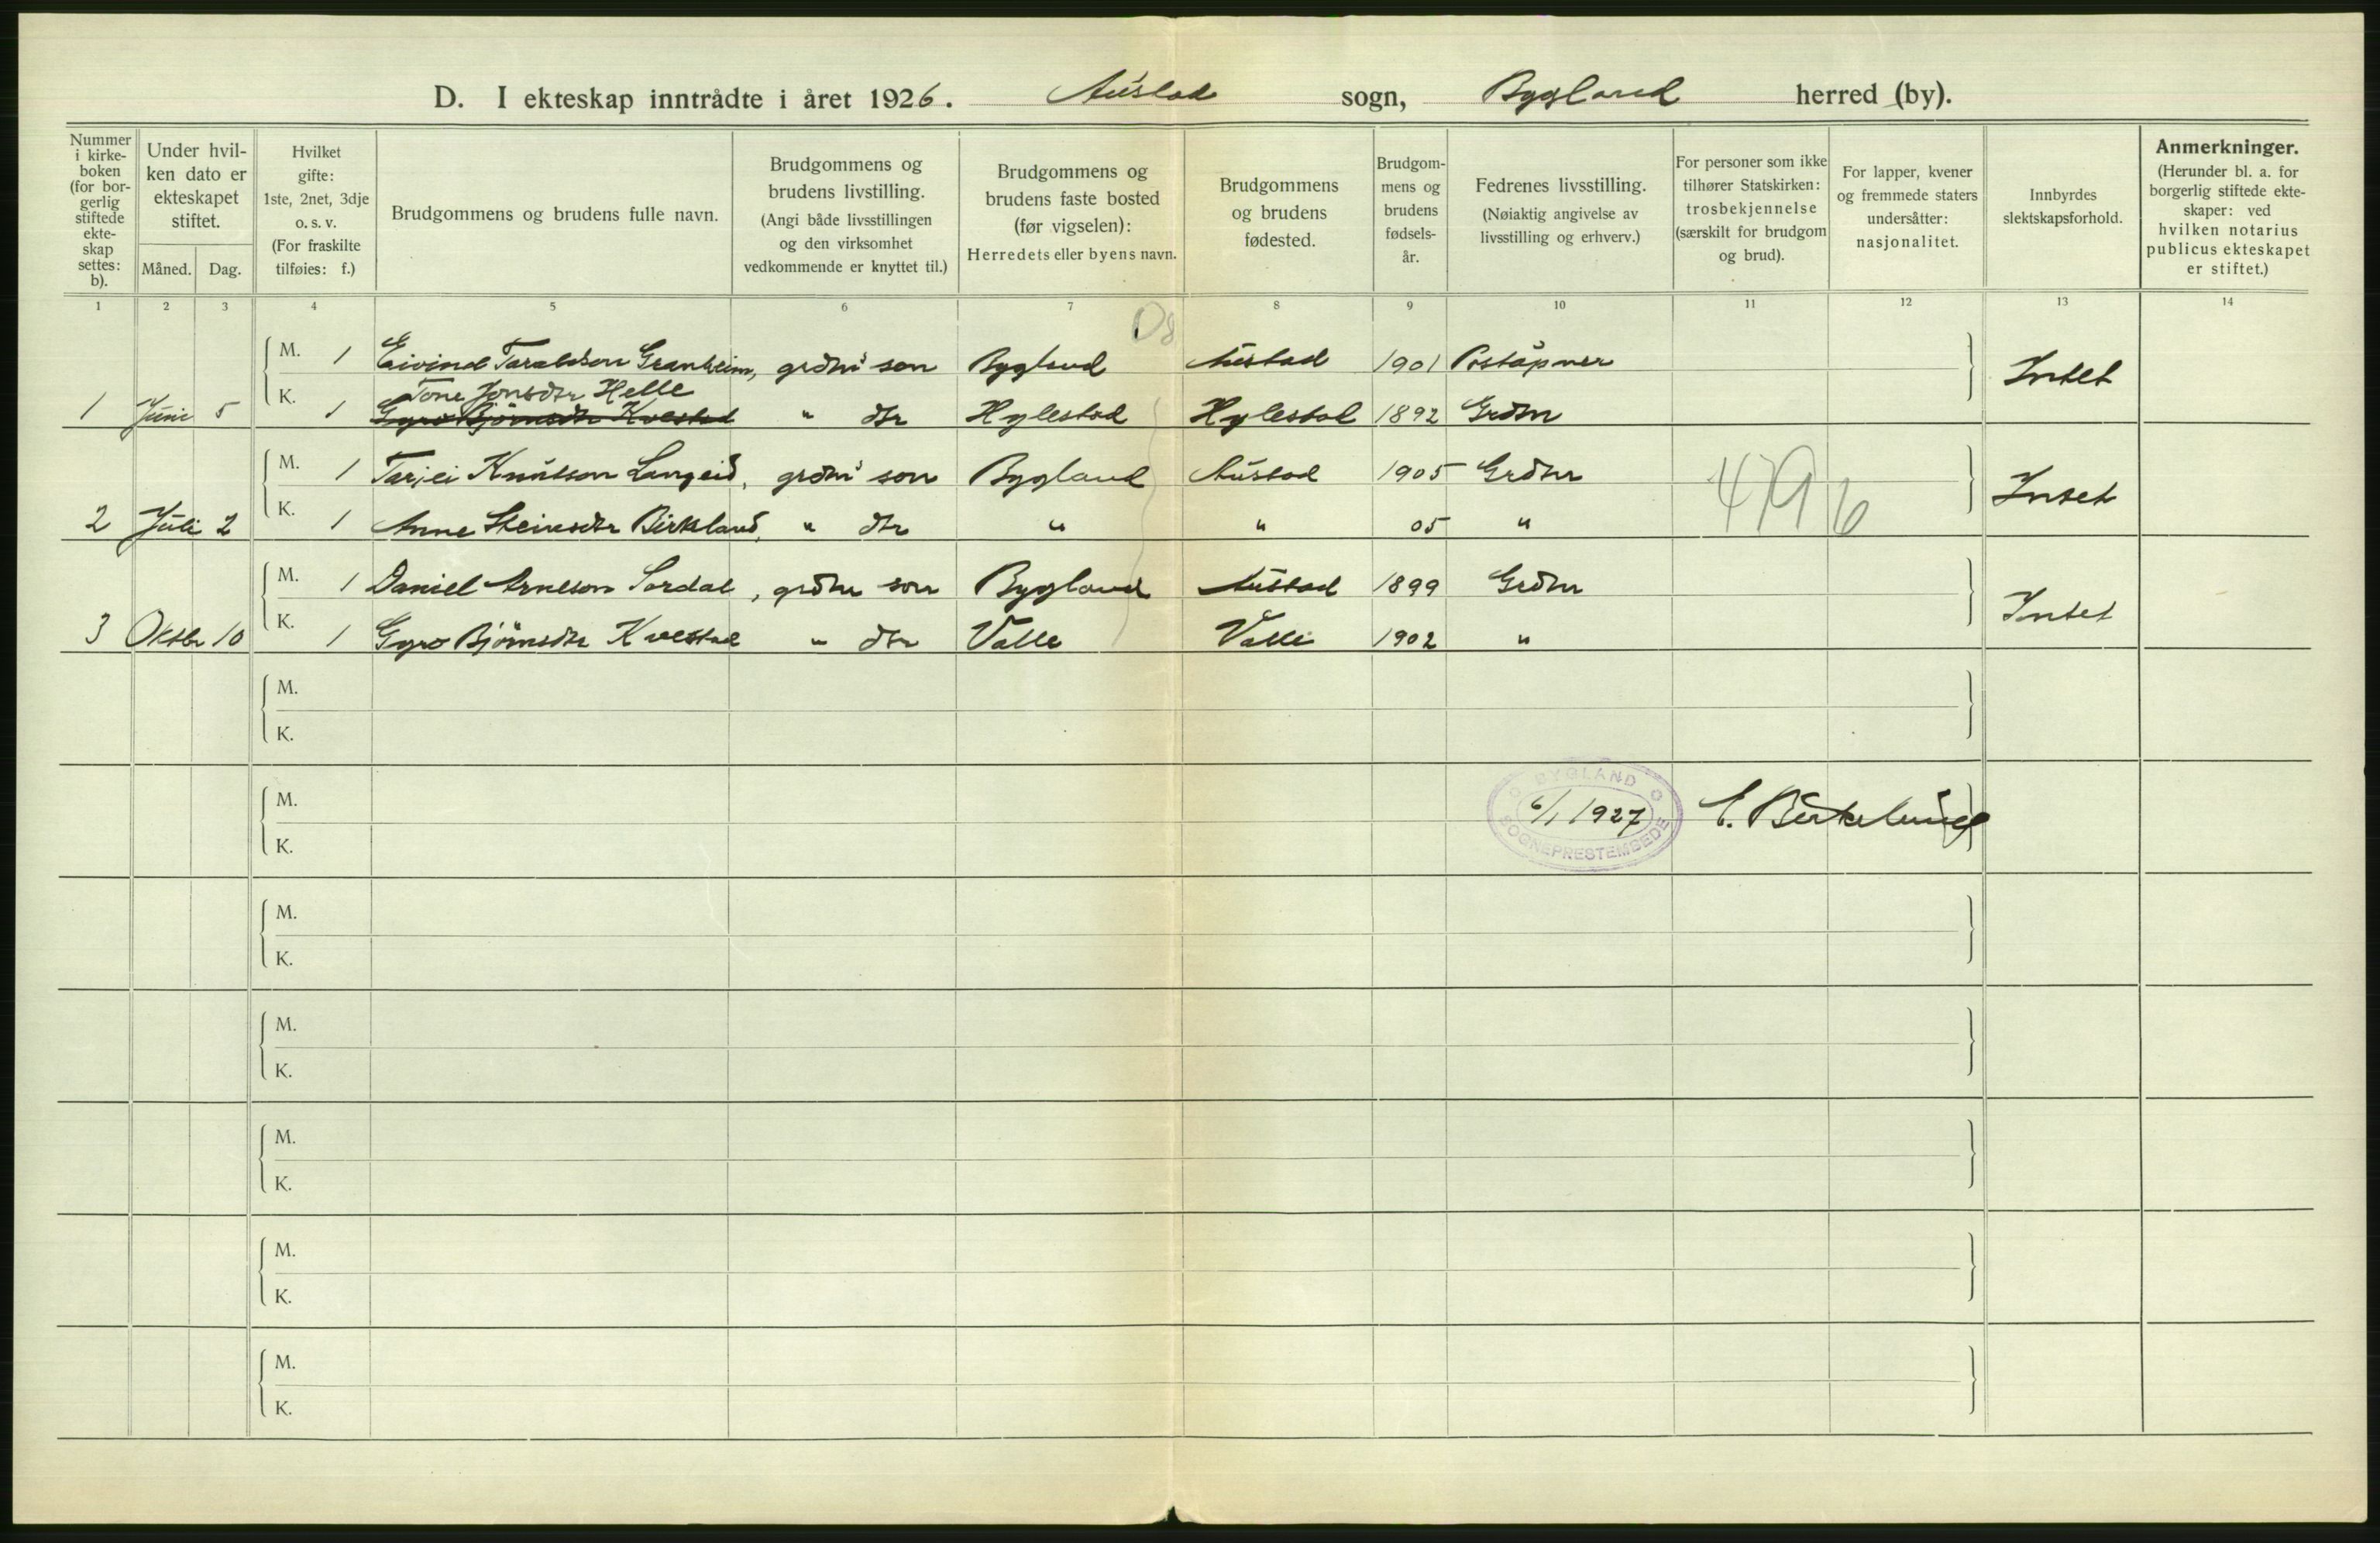 D. I ekteskap inntrådte i året 1926. Austad sogn, Bygland herred (by).
Nummer i kirke-boken (for bor-gerlig stiftede ekte-skap settes: b).
Under hvil-ken dato er ekteskapet stiftet.
Måned. Dag.
Hvilket gifte: 1ste, 2net, 3dje o. s. v. (For fraskilte tilføies: f.)
Brudgommens og brudens fulle navn.
Brudgommens og brudens livstilling. (Angi både livsstillingen og den virksomhet vedkommende er knyttet til.)
Brudgommens og brudens faste bosted (før vigselen): Herredets eller byens navn.
Brudgommens og brudens fødested.
Brudgom-mens og brudens fødsels-år.
Fedrenes livsstilling. (Nøiaktig angivelse av livsstilling og erhverv.)
For personer som ikke tilhører Statskirken: trosbekjennelse (særskilt for brudgom og brud).
For lapper, kvener og fremmede staters undersåtter: nasjonalitet.
Innbyrdes slektskapsforhold.
Anmerkninger. (Herunder bl. a. for borgerlig stiftede ekte-skaper: ved hvilken notarius publicus ekteskapet er stiftet.)
1 2 3 4 5 6 7 8 9 10 11 12 13 14
M. 1 Eivind Taraldson Granheim, grdm' son Bygland Austad 1901 Poståpner Intet
Tone Jonsdtr Helle
1 Juni 5 K. 1 Gyro Björnsdtr Kvestad " dtr Hylestad Hylestad 1892 Grdm
M. 1 Tarjei Knutson Langeid, grdm' son Bygland Austad 1905 Grdm Intet
2 Juli 2 K. 1 Anne Steinsdtr Birkland, " dtr " " 05 "
M. 1 Daniel Arneson Sordal, grdm son Bygland Austad 1899 Grdm Intet
3 Oktbr 10 K. 1 Gyro Björnsdtr Kvestad " dtr Valle Valle 1902 "
M.
K.
M.
BYGLAND SOGNEPRESTEMBEDE
6/1 1927
K.
M.
K.
M.
K.
M.
K.
M.
K.
M.
K.